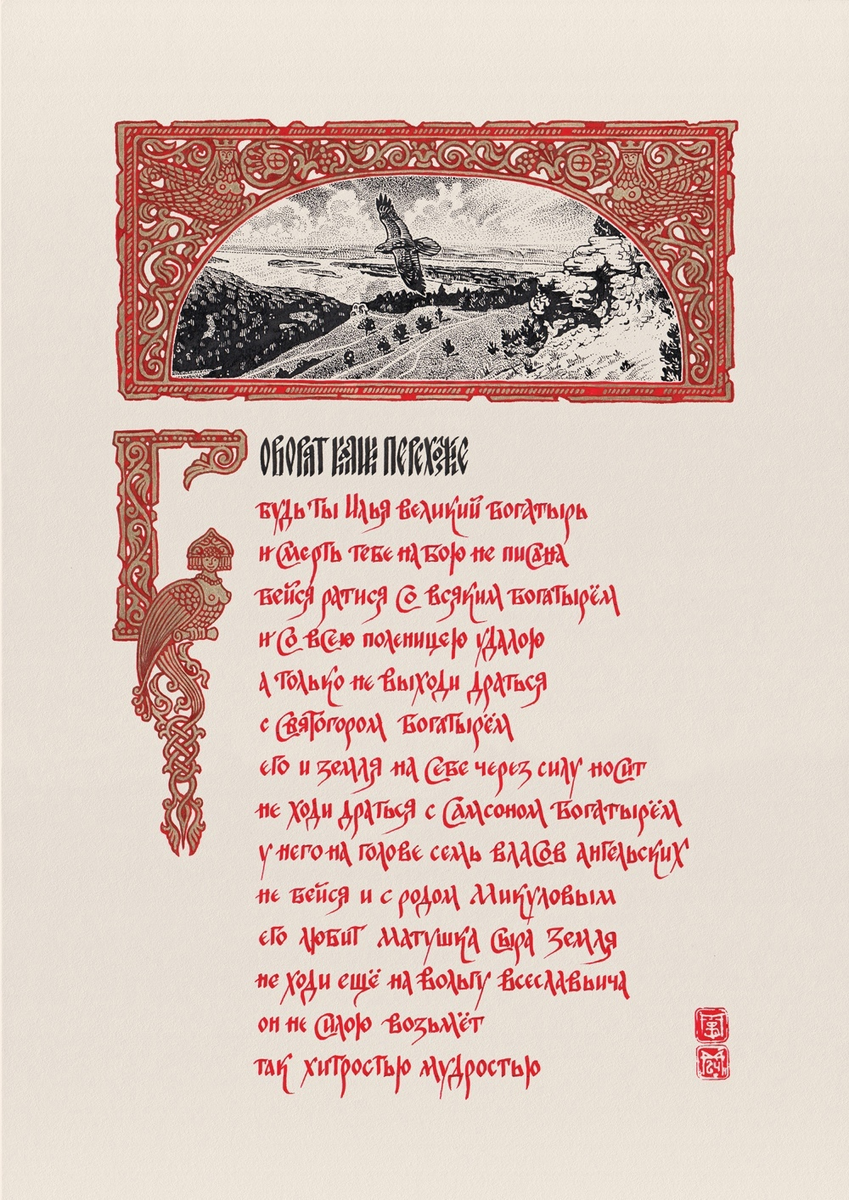 Говорят калики перехожие
будь ты Илья великий богатырь
и смерть тебе на бою не писана
бейся ратися со всяким богатырём
и со всею поленицею удалою
а только не выходи драться
с Святогором богатырём
его и земля на себе через силу носит
не ходи драться с Самсоном богатырём
у него на голове семь власов ангельских
не бейся и с родом Микуловым
его любит матушка сыра земля
не ходи ещё на Вольгу Всеславьича
он не силою возьмёт
так хитростью мудростью